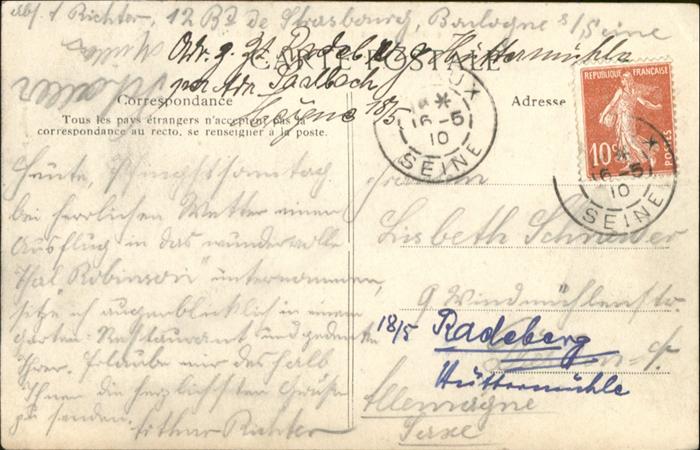 Abs. Richter, 12 Bd de Strasbourg, Boulogne s/Seine
Radeberg Hüttermühle
CARTE POSTALE
Correspondance
Adresse
Tous les pays étrangers n'acceptent pas la
correspondance au recto, se renseigner à la poste.
18/5
16-5
10
SEINE
REPUBLIQUE FRANÇAISE
10c
POSTES
16-5
10
SEINE
Heute, Pfingstsonntag
bei herrlichen Wetter einen
Ausflug in das wundervolle
Thal „Robinson" unternommen,
sitze ich augenblicklich in einem
Garten-Restaurant und gedenke
Ihrer. Erlaube mir deshalb
Ihnen die herzlichsten Grüße
zu senden.
Arthur Richter
Fräulein
Lisbeth Schneider
9 Windmühlenstr.
18/5 Radeberg
Hüttermühle
Allemagne
Saxe